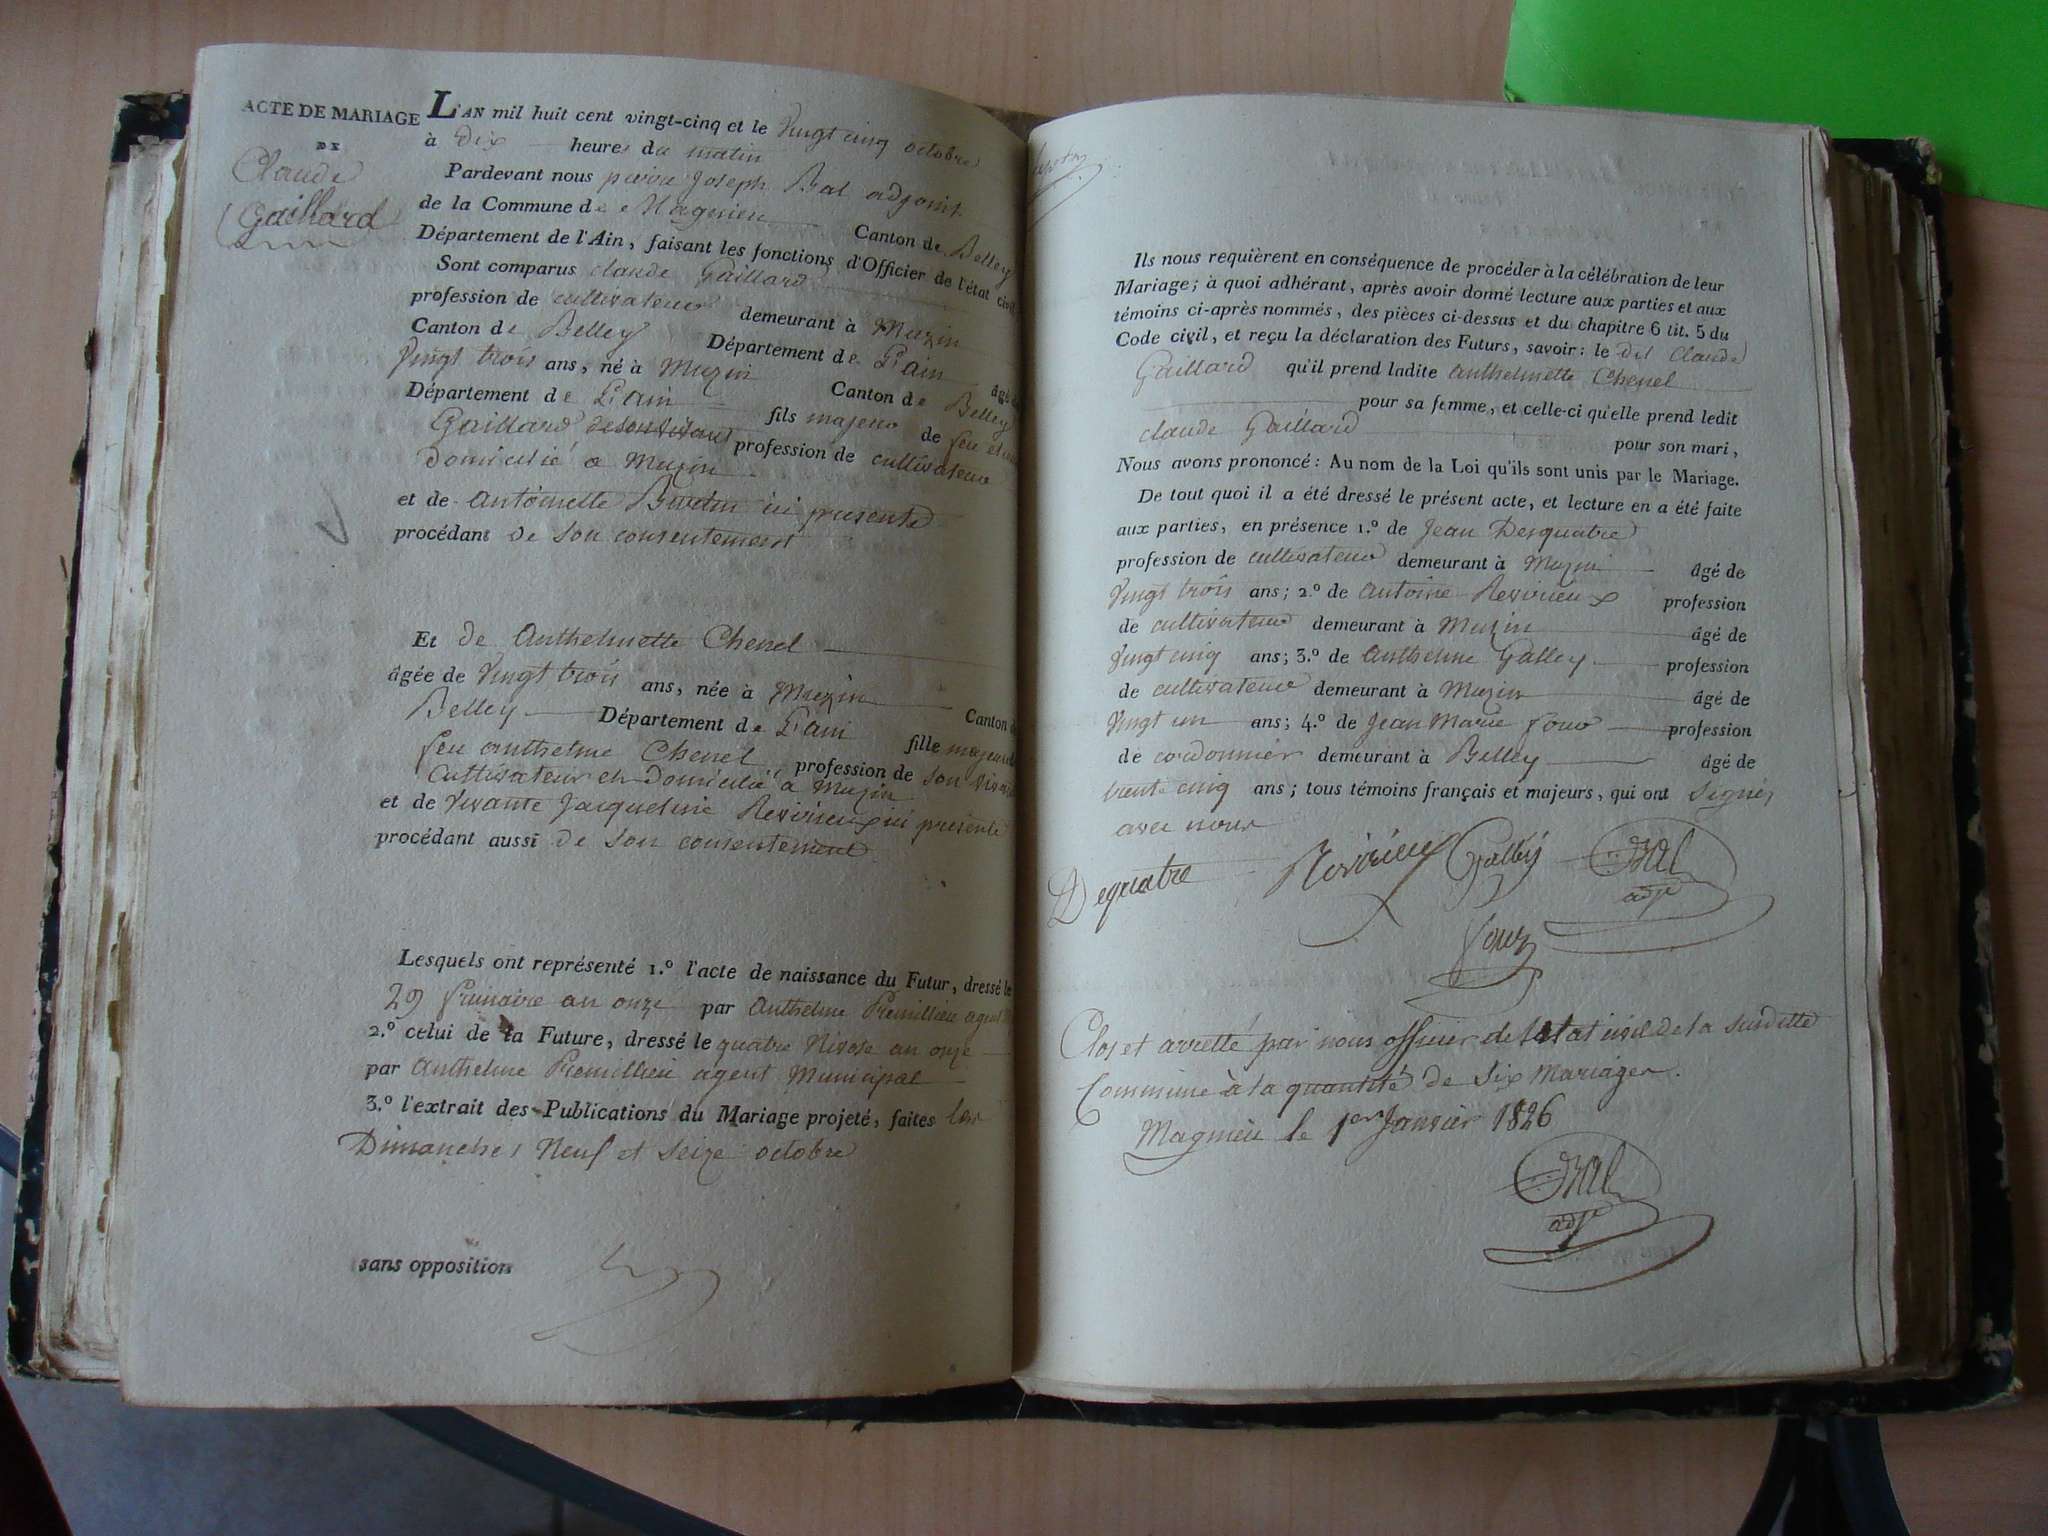 ACTE DE MARIAGE
DE
Claude
Gaillard
L'AN mil huit cent vingt-cinq et le vingt cinq octobre
à dix heures du matin
Pardevant nous pierre Joseph Bal adjoint
de la Commune de Magnieu Canton de Belley
Département de l'Ain, faisant les fonctions d'Officier de l'état civil
Sont comparus claude Gaillard
profession de cultivateur demeurant à Muzin
Canton de Belley Département de L'ain âgé de
vingt trois ans, né à Muzin Canton de Belley
Département de L'ain fils majeur de feu
Gaillard de son vivant profession de cultivateur
domicilié a Muzin
et de Antoinette ici presente
procédant de son consentement
Et de Anthelmette Chenel
âgée de vingt trois ans, née à Muzin Canton de
Belley Département de L'ain fille majeure de
feu anthelme Chenel profession de son vivant
cultivateur et domicilié a Muzin
et de vivante Jacqueline Revirieux ici presente
procédant aussi de son consentement
Lesquels ont représenté 1.º l'acte de naissance du Futur, dressé le
29 frimaire an onze par Anthelme Premillieu agent
2.º celui de la Future, dressé le quatre Nivose an onze
par Anthelme Premillieu agent Municipal
3.º l'extrait des Publications du Mariage projeté, faites les
Dimanches Neuf et Seize octobre
sans opposition
Ils nous requièrent en conséquence de procéder à la célébration de leur
Mariage; à quoi adhérant, après avoir donné lecture aux parties et aux
témoins ci-après nommés, des pièces ci-dessus et du chapitre 6 tit. 5 du
Code civil, et reçu la déclaration des Futurs, savoir: le dit Claude
Gaillard qu'il prend ladite anthelmette Chenel
pour sa femme, et celle-ci qu'elle prend ledit
claude Gaillard pour son mari,
Nous avons prononcé: Au nom de la Loi qu'ils sont unis par le Mariage.
De tout quoi il a été dressé le présent acte, et lecture en a été faite
aux parties, en présence 1.º de Jean Desquatre
profession de cultivateur demeurant à Muzin âgé de
vingt trois ans; 2.º de Antoine Revirieux profession
de cultivateur demeurant à Muzin âgé de
vingt cinq ans; 3.º de Anthelme Galley profession
de cultivateur demeurant à Muzin âgé de
vingt un ans; 4.º de Jean Marie four profession
de cordonnier demeurant à Belley âgé de
trente cinq ans; tous témoins français et majeurs, qui ont signés
avec nous
Dequatre Revirieux Galley Bal
adjt
four
Clos et arretté par nous officier de l'etat civil de la susditte
Commune à la quantité de six Mariages.
Magnieu le 1er Janvier 1826
Bal
adjt